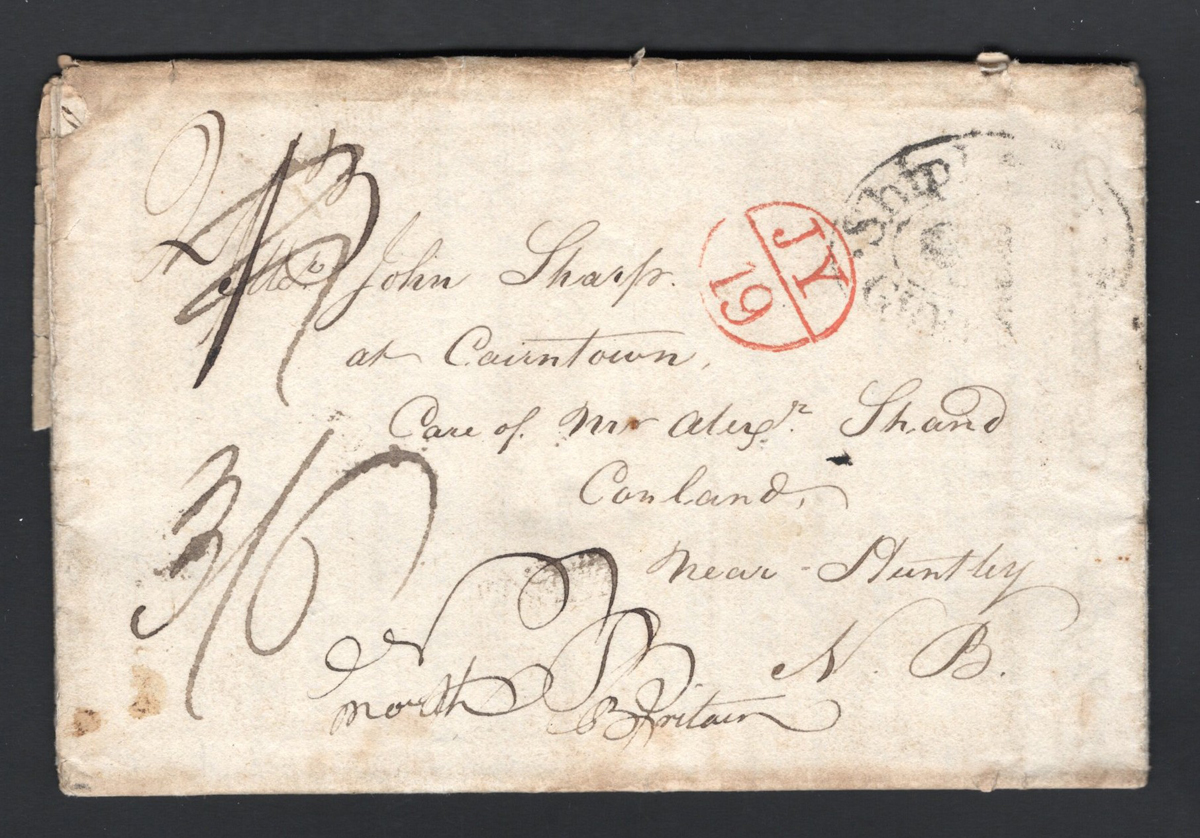 Ship
JY
19
John Sharp.
at Cairntown,
Care of Mr Alexr. Shand
Conland,
Near Huntley
N. B.
3/6
North Britain